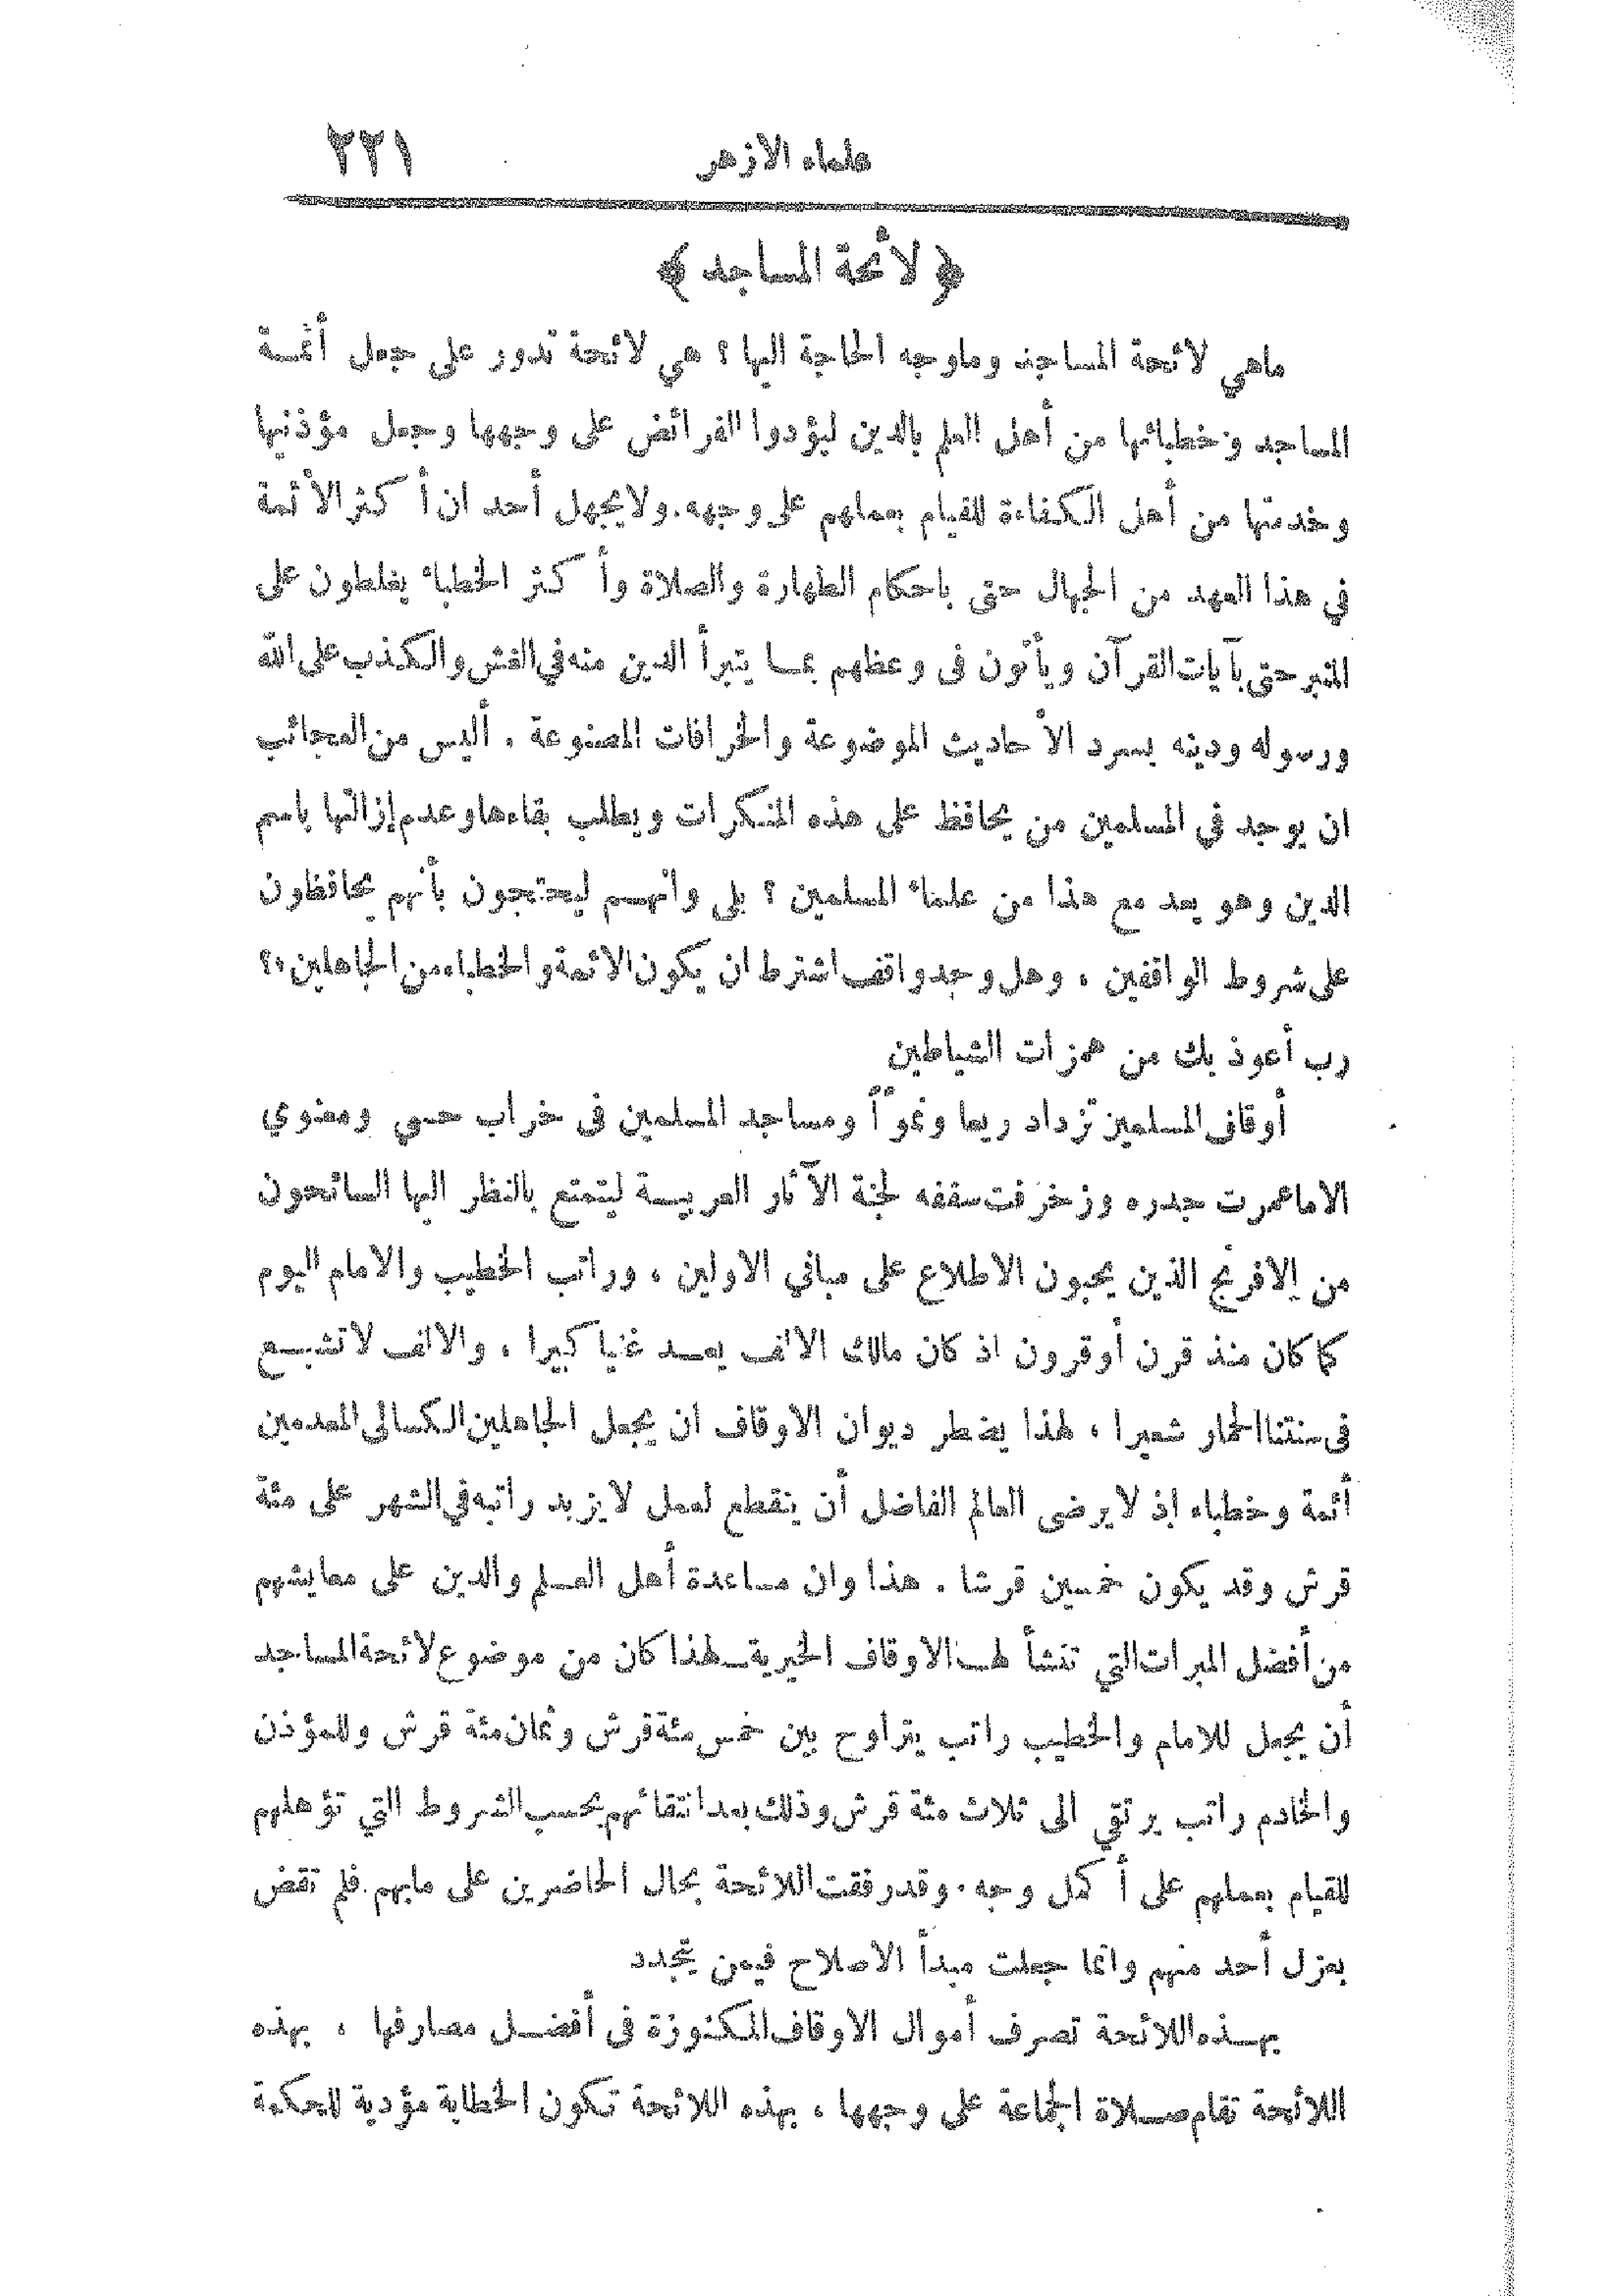 علماء الازهر ٢٢١
﴿ لائحة المساجد ﴾
ماهي لائحة المساجد وماوجه الحاجة اليها ؟ هي لائحة تدور على جعل أئمة
المساجد وخطبائها من أهل العلم بالدين ليؤدوا الفرائض على وجهها وجعل مؤذنيها
وخدمتها من أهل الكفاءة للقيام بعملهم على وجهه. ولا يجهل أحد ان أكثر الأئمة
في هذا العهد من الجهال حتى باحكام الطهارة والصلاة وأكثر الخطباء يغلطون على
المنبر حتى بآيات القرآن ويأتون فى وعظهم بما يتبرأ الدين منه في الغش والكذب على الله
ورسوله ودينه بسرد الأحاديث الموضوعة والخرافات المصنوعة . أليس من العجائب
ان يوجد في المسلمين من يحافظ على هذه المنكرات ويطلب بقاءها وعدم إزالتها باسم
الدين وهو يعد مع هذا من علماء المسلمين ؟ بلى وانهم ليحتجون بأنهم يحافظون
على شروط الواقفين ، وهل وجد واقف اشترط ان يكون الائمة والخطباء من الجاهلين ؟؟
رب أعوذ بك من همزات الشياطين
أوقاف المسلمين تزداد ريعا ونموّاً ومساجد المسلمين فى خراب حسي ومعنوي
الا ما عمرت جدره وزخرفت سقفه لجنة الآثار العربية ليتمتع بالنظر اليها السائحون
من الافرنج الذين يحبون الاطلاع على مباني الاولين ، وراتب الخطيب والامام اليوم
كما كان منذ قرن أو قرون اذ كان مالك الالف يعد غنيا كبيرا ، والالف لا تشبع
فى سنتنا الحمار شعيرا ، لهذا يضطر ديوان الاوقاف ان يجعل الجاهلين الكسالى المعدمين
أئمة وخطباء إذ لا يرضى العالم الفاضل أن ينقطع لعمل لا يزيد راتبه في الشهر على مئة
قرش وقد يكون خمسين قرشا . هذا وان مساعدة أهل العلم والدين على معايشهم
من أفضل المبرات التي تنشأ لها الاوقاف الخيرية ــ لهذا كان من موضوع لائحة المساجد
أن يجعل للامام والخطيب راتب يتراوح بين خمس مئة قرش وثمان مئة قرش وللمؤذن
والخادم راتب يرتقي الى ثلاث مئة قرش وذلك بعد انتقائهم بحسب الشروط التي تؤهلهم
للقيام بعملهم على أكمل وجه . وقد رفقت اللائحة بحال الحاضرين على مابهم. فلم تقض
بعزل أحد منهم وانما جعلت مبدأ الاصلاح فيمن يتجدد
بهذه اللائحة تصرف أموال الاوقاف المكنوزة فى أفضل مصارفها ، بهذه
اللائحة تقام صلاة الجماعة على وجهها ، بهذه اللائحة تكون الخطابة مؤدية للحكمة